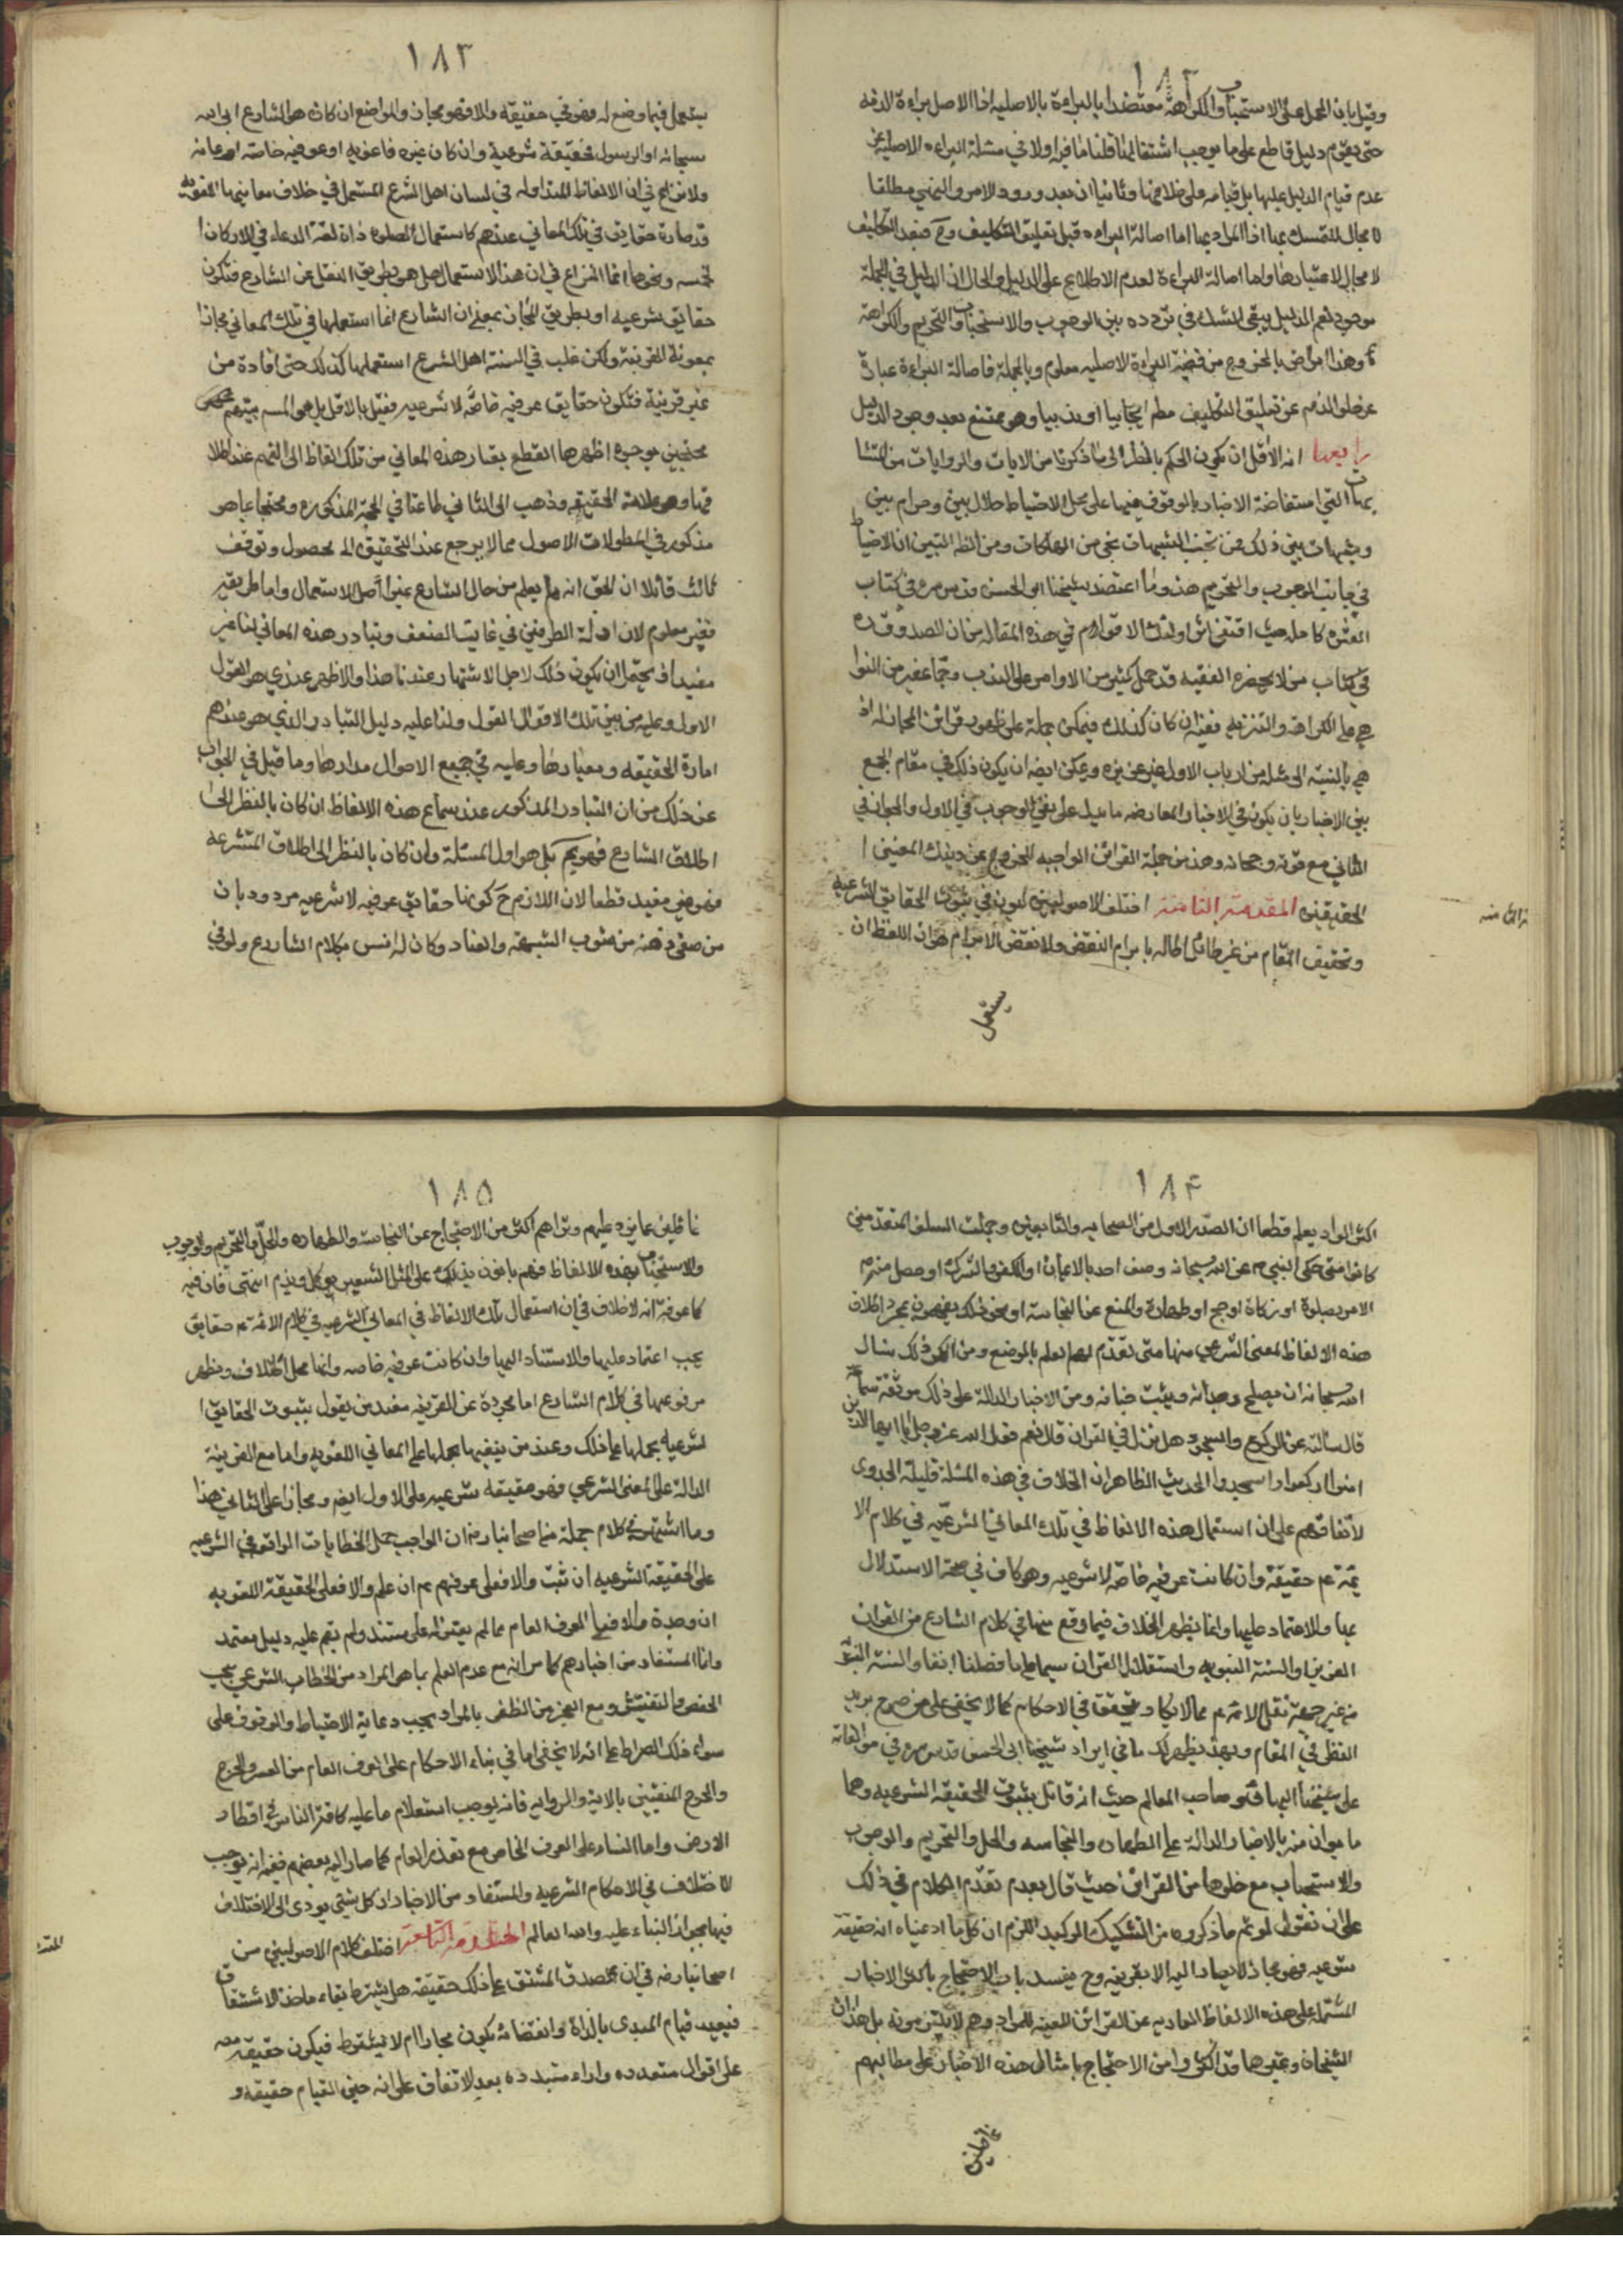 ١٨٢
وقيل بان الحمل على الاستحباب والكراهة معتضدا بالبراءة بالاصلية اذ الاصل براءة الذمه
حتى يقوم دليل قاطع على ما يوجب اشتغالها قلنا اولا في مسئلة البراءه الاصلية عن
عدم قيام الدليل عليها بل قيامه على خلافها وثانيا ان بعد ورود الامر والنهي مطلقا
لا مجال للتمسك بها اذ المراد بها اما اصالة البراءه قبل تعليق التكليف وح فبعد التكليف
لا مجال لاعتبارها واما اصالة البراءة لعدم الاطلاع على الدليل والحال ان الدليل في الجملة
موجود نعم الدليل يبقى الشك في تردده بين الوجوب والاستحباب والتحريم والكراهة
وهذا بالخروج من قضية البراءة الاصليه معلوم وبالجملة فاصالة البراءة عبارة
عن خلو الذمه عن تعليق التكليف مطم ايجابيا او ندبيا وهو ممتنع بعد وجود الدليل
رابعها انه الاقل ان يكون الحكم بالنظر الى ما ذكرنا من الايات والروايات من المتشا
بهات التي استفاضة الاخبار بالوقوف فيها على محل الاحتياط حلال بين وحرام بين
وشبهات بين ذلك فمن تجنب الشبهات نجى من الهلكات ومن الظ البين ان الاحتياط
في جانب الوجوب والتحريم هذا وما اعتضد شيخنا ابو الحسن قدس سره في كتاب
العشرة كامله حيث اقتفى اثر اولئك الاقوام في هذه المقاله من ان الصدوق ره
في كتاب من لا يحضره الفقيه قد حمل كثير من الاوامر على الندب وجما غفير من النوا
هي على الكراهة والتنزيه ففيه ان كان كذلك فيمكن حمله على ظهور قرائن المجاز له اذ
هي بالنسبة الى مثله من ارباب الاول غير عزيزه ويمكن ايضا ان يكون ذلك في مقام الجمع
بين الاخبار بان يكون في الاخبار المعارضه ما يدل على نفي الوجوب في الاول والجواز في
الثاني مع قوته ورجحانه وهذه من جملة القرائن الواجبه للخروج عن ذينك المعنيين ا
لحقيقين المقدمة الثامنة اختلف الاصوليون في ثبوت الحقايق الشرعية
وتحقيق المقام من غير طائل اطاله بابرام النقض ولا نقض الابرام هو ان اللفظ ان
يستعمل
الثامنه
١٨٣
يستعمل فيما وضع له فهو في حقيقة والا فهو مجاز والواضع ان كان هو الشارع اي الله
سبحانه او الرسول فحقيقة شرعية وان كان غيره فلغويه او عرفيه خاصة او عامة
ولا نزاع في ان الالفاظ المتداوله في لسان اهل الشرع المستعمل في خلاف معانيها اللغويه
قد صارة حقايق في تلك المعاني عندهم كاستعمال الصلوه ذاة لغة الدعاء في الاركان ا
لخمسه ونحوها انما النزاع في ان هذا الاستعمال هل هو بطريق النقل عن الشارع فتكون
حقايق شرعيه او بطريق المجاز بمعنى ان الشارع انما استعملها في تلك المعاني مجازا
بمعونة القرينة ولكن غلب في السنة اهل الشرع استعملها كذلك حتى افادة من
غير قرينة فتكون حقايق عرفيه خاصة لا شرعيه فقيل بالاول بل هو الم بينهم
محتجين بوجوه اظهرها القطع بتبادر هذه المعاني من تلك الفاظ الى الفهم عند اطلا
قها وهو علامة الحقيقه وذهب الى الثاني طاعنا في الحجه المذكوره ومحتجا بما هو
مذكور في مطولات الاصول مما لا يرجع عند التحقيق الى محصول وتوقف
ثالث قائلا ان الحق انه لم يعلم من حال الشارع غير اصل الاستعمال واما طريقه
فغير معلوم لان ادلة الطرفين في غاية الضعف وتبادر هذه المعاني لنا غير
مفيد اذ يحتمل ان يكون ذلك لاجل الاشتهار عندنا هذا والاظهر عندي هو القول
الاول وعليه من بين تلك الاقوال القول ولنا عليه دليل التبادر الذي هو عندهم
امارة الحقيقه ومعيارها وعليه في جميع الاصول مدارها وما قيل في الجواب
عن ذلك من ان التبادر المذكور عند سماع هذه الالفاظ ان كان بالنظر الى
اطلاق الشارع فهو بل هو اول المسئلة وان كان بالنظر الى اطلاق المتشرعه
فهو غير مفيد قطعا لان اللازم ح كونها حقايق عرفيه لا شرعيه مردود بان
من صفى ذهنه من شوب الشبهة والعناد وكان له انس بكلام الشارع ولو في
١٨۴
اكثر المواد يعلم قطعا ان الصدر الاول من الصحابه والتابعين وجملت السلف المتقدمين
كانوا متى حكى النبي ص عن الله سبحانه وصف احد بالايمان او الكفر والشرك او حصل منه
الامر بصلوة او زكاة او حج او طهارة والمنع عن النجاسة او نحو ذلك يفهمون بمجرد اطلاق
هذه الالفاظ المعنى الشرعي منها متى تقدم لهم تعلم بالموضع ومن انكر ذلك نسال
الله سبحانه ان يصلح وجدانه ويثبت جنانه ومن الاخبار الدالة على ذلك موثقة سماعه
قال سالته عن الركوع والسجود هل نزل في القران قال نعم فقول الله عز وجل يا ايها الذين
امنوا اركعوا واسجدوا الحديث الظاهر ان الخلاف في هذه المسئلة قليلة الجدوى
لاتفاقهم على ان استعمال هذه الالفاظ في تلك المعاني الشرعيه في كلام الا
ئمة عم حقيقة وان كانت عرفيه خاصه لا شرعيه وهو كاف في صحة الاستدلال
بها والاعتماد عليها وانما يظهر الخلاف فيما وقع منها في كلام الشارع من القران
العزيز والسنة النبويه واستقلال القران سيما على ما فصلنا انفا والسنة النبويه
من غير جهة نقل الائمة عم مما لا يكاد يتحقق في الاحكام كما لا يخفى على من
في المقام وبهذا يظهر لك ما في ايراد شيخنا ابي الحسن قدس سره في مؤلفاته
على شيخنا البهائي وصاحب المعالم حيث انه قائل بثبوت الحقيقة الشرعيه وهما
ما بوان منه بالاخبار الدالة على الطهاره والنجاسه والحل والتحريم والوجوب
والاستحباب مع خلوها من القرائن حيث قال بعد تقدم الكلام في ذلك
على ان نقول لو تم ما ذكروه من التشكيك الركيك للزم ان كل ما ادعيناه انه حقيقة
شرعيه فهو مجاز لا يصار اليه الا بقرينه وح يفسد باب الاحتجاج باكثر الاخبار
المشتمله على هذه الالفاظ العاريه عن القرائن المعينه للمراد وهم لا يلتزمونه بل هذان
الشيخان وغيرهما قد اكثروا من الاحتجاج بامثال هذه الاخبار على مطالبهم
غافلين
١٨٥
غافلين عما يرد عليهم وتراهم اكثر من الاحتجاج عن النجاسة والطهاره والحل والتحريم والوجوب
والاستحباب بهذه الالفاظ فهم على المثل الشعير يوكل ويذم انتهى فان فيه
كما عرفت انه لا خلاف في ان استعمال تلك الالفاظ في المعاني الشرعيه في كلام الائمة عم حقايق
يجب اعتماد عليها والاستناد اليها وان كانت عرفيه خاصه وانما محل الخلاف ويظهر
مر فوعها في كلام الشارع اما مجردة عن القرينه فعند من يقول بثبوت الحقايق ا
لشرعيه يحملها على ذلك وعند من ينفيها يحملها على المعاني اللغويه واما مع القرينة
الدالة على المعنى الشرعي فهو حقيقه شرعيه على الاول ايضا ومجازا على الثاني هذا
وما اشتهر في كلام جملة من اصحابنا رض ان الواجب حمل الخطابات الواقعه في الشرعيه
على الحقيقة الشرعيه ان ثبت والا فعلى عرفهم عم ان علم والا فعلى الحقيقة اللغويه
ان وجدة والا فعلى العرف العام مما لم يعثر له على مستند ولم يقم عليه دليل معتمد
وانما المستفاد من اخبارهم كما مر انه مع عدم العلم بما هو المراد من الخطاب الشرعي يجب
الفحص والتفتيش ومع العجز من الظفر بالمراد يجب رعاية الاحتياط والوقوف على
سواء ذلك الصراط على انه لا يخفى ما في بناء الاحكام على العرف العام من العسر والحرج
والحرج المنفيين بالاية والروايه فانه يوجب استعلام ما عليه كافة الناس في اقطار
الارض واما البناء على العرف الخاص مع تعذر العام كما صار اليه بعضهم ففيه انه يوجب
الاختلاف في الاحكام الشرعيه والمستفاد من الاخبار ان كل شيئ يودى الى الاختلاف
فيها يجوز البناء عليه والله العالم المقدمة التاسعة اختلف كلام الاصوليين من
اصحابنا رض في ان صدق المشتق على ذلك حقيقة هل يشترط بقاء ماخذ الاشتقاق
فبعيد قيام المبدى بالذاة وانقضائه يكون مجازا ام لا يشترط فيكون حقيقة
على اقوال متعدده واراء متبدده بعد الاتفاق على انه حين القيام حقيقه و